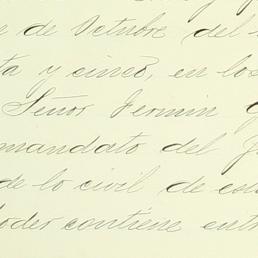 e de Octubre del
ta y cinco, en los
Señor Fermin G
mandato del Ju
de lo civil de est
oder contiene entr